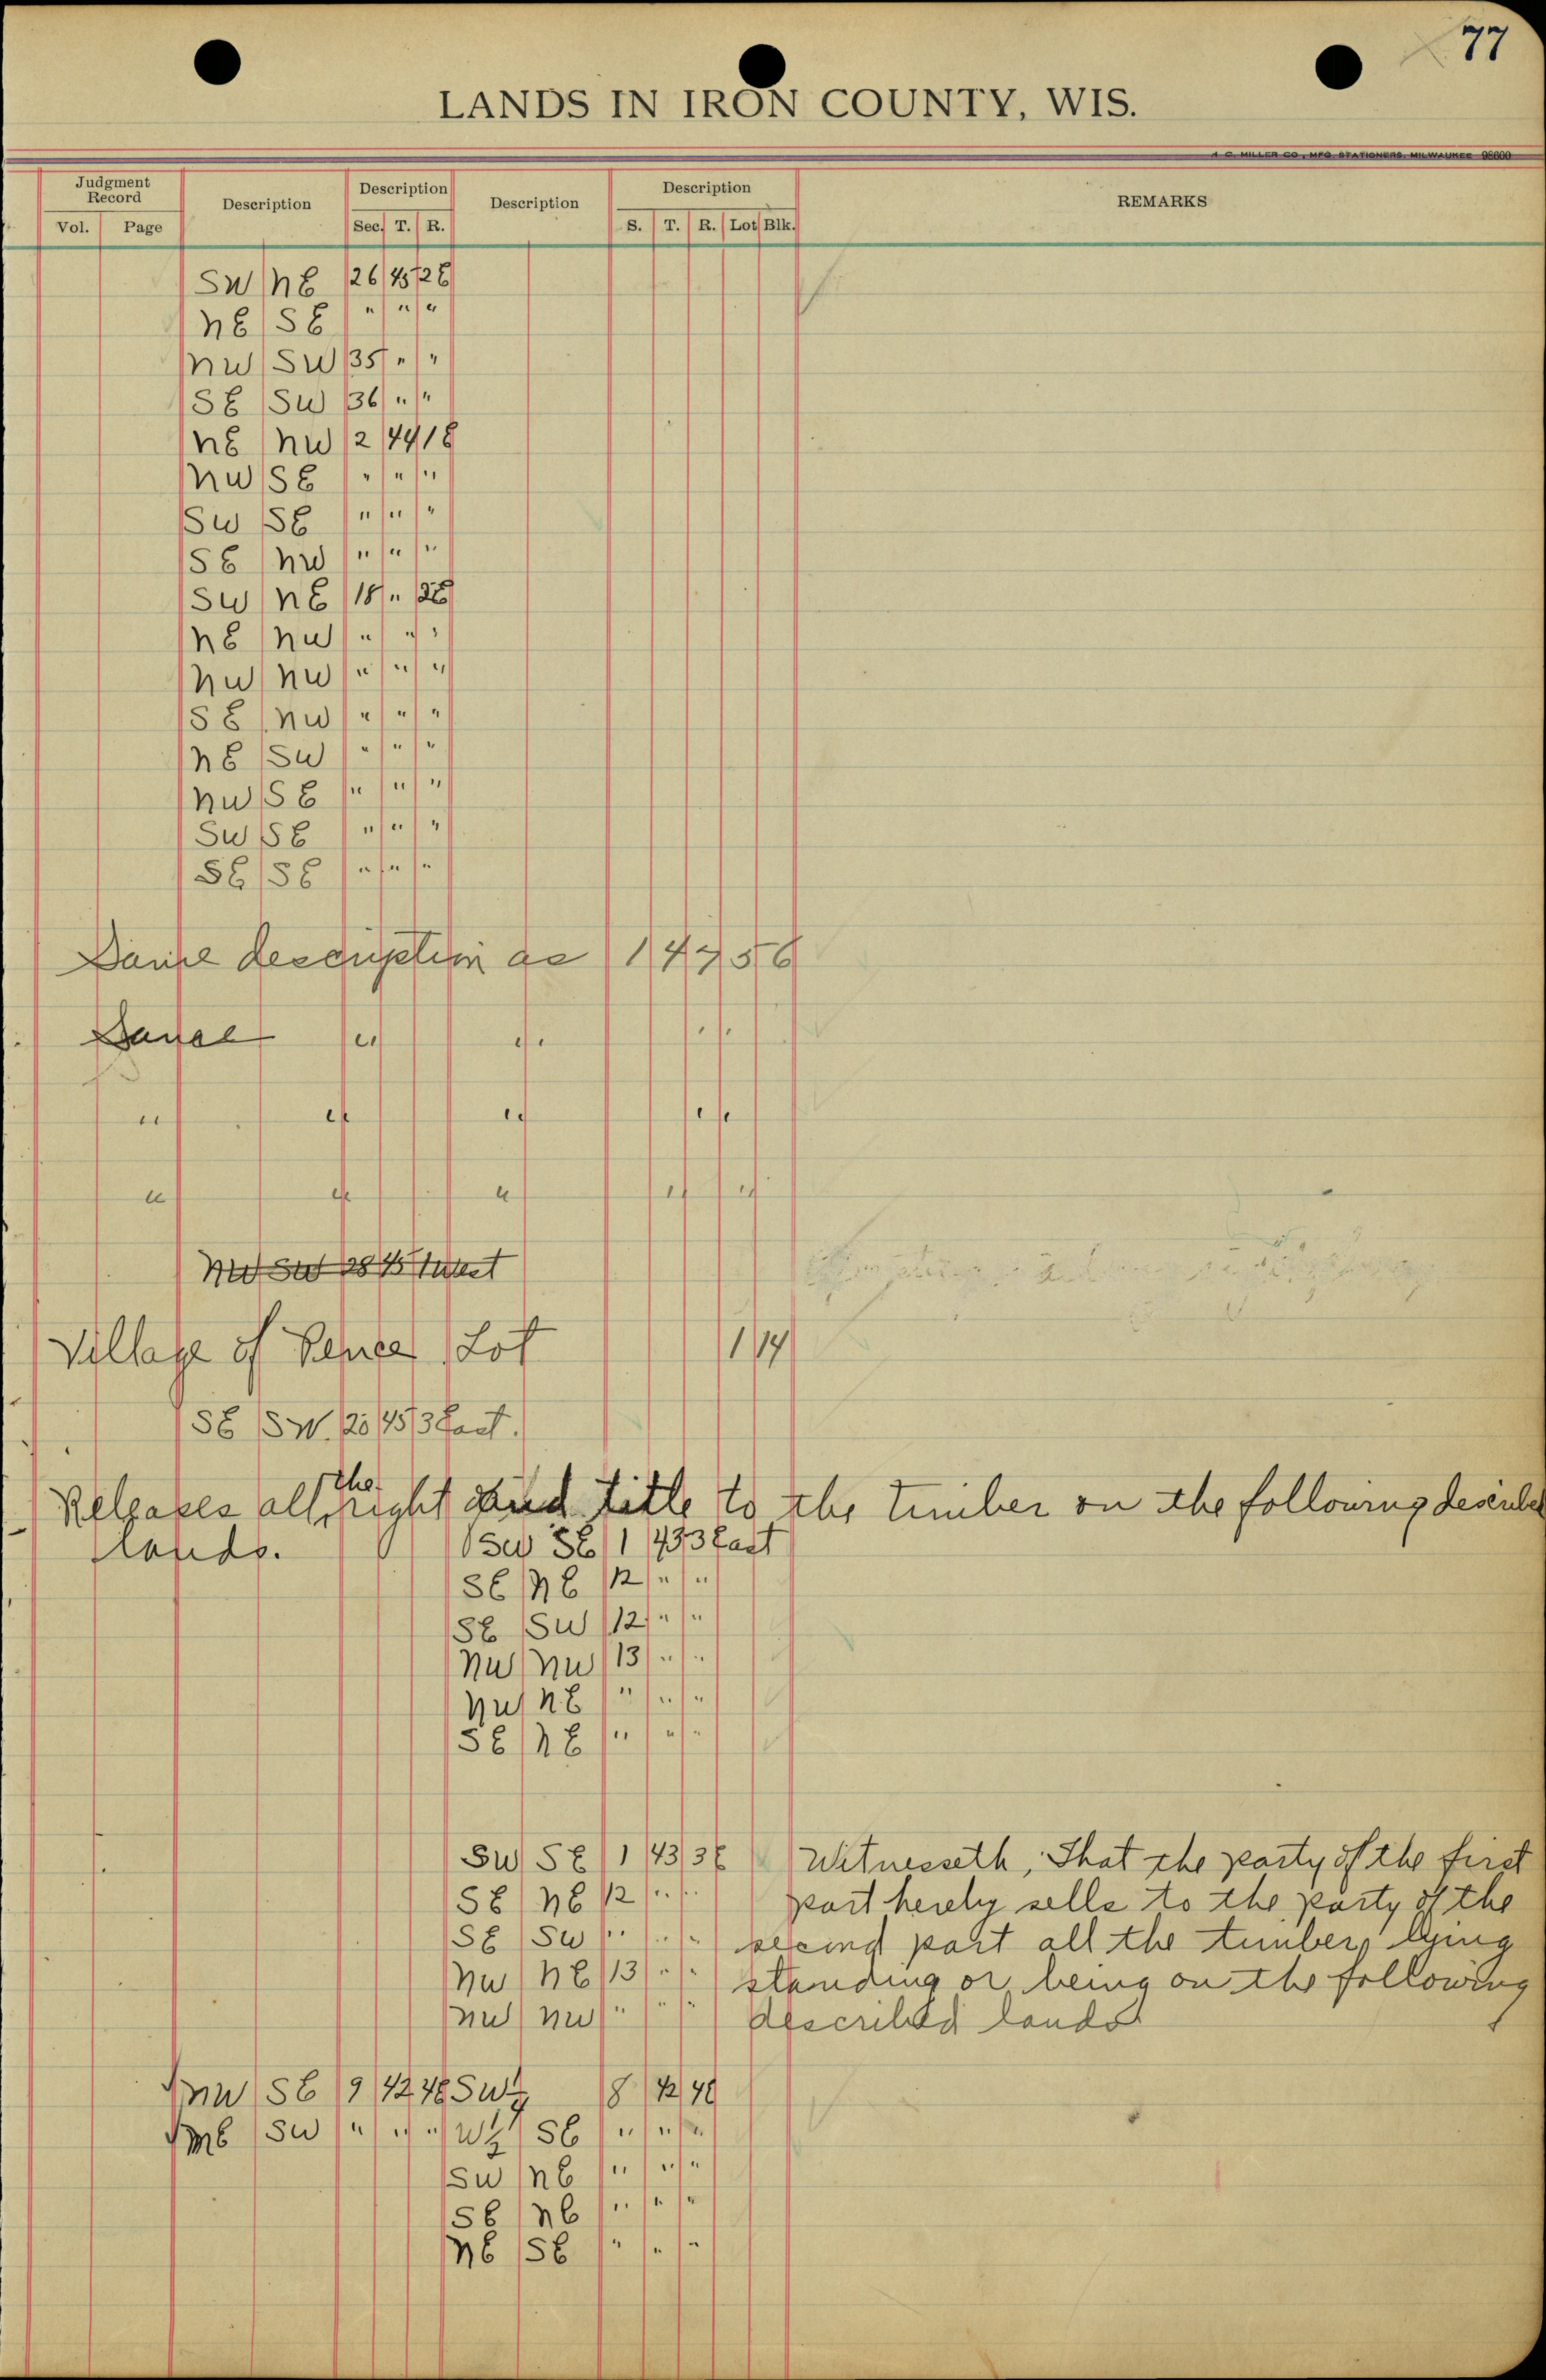 77
LANDS IN IRON COUNTY, WIS.
A. C. MILLER CO., MFG. STATIONERS, MILWAUKEE 98600
Judgment Record Description Description Description Description REMARKS
Vol. Page Sec. T. R. S. T. R. Lot Blk.
SW NE 26 45 2E
NE SE " " "
NW SW 35 " "
SE SW 36 " "
NE NW 2 44 1E
NW SE " " "
SW SE " " "
SE NW " " "
SW NE 18 " 2E
NE NW " " "
NW NW " " "
SE NW " " "
NE SW " " "
NW SE " " "
SW SE " " "
SE SE " " "
Same description as 14756
Same " " " "
" " " " "
" " " " "
NW SW 28 45 1 West
Village of Pence Lot 1 14
SE SW. 20 45 3 East.
the
Releases all right and title to the timber on the following describe
lands.
SW SE 1 43 3 East
SE NE 12 " "
SE SW 12 " "
NW NW 13 " "
NW NE " " "
SE NE " " "
SW SE 1 43 3E Witnesseth, That the party of the first
SE NE 12 " " part hereby sells to the party of the
SE SW " " " second part all the timber, lying
NW NE 13 " " standing or being on the following
NW NW " " " described lands
NW SE 9 42 4E SW¼ 8 42 4E
NE SW " " " W½ SE " " "
SW NE " " "
SE NE " " "
NE SE " " "